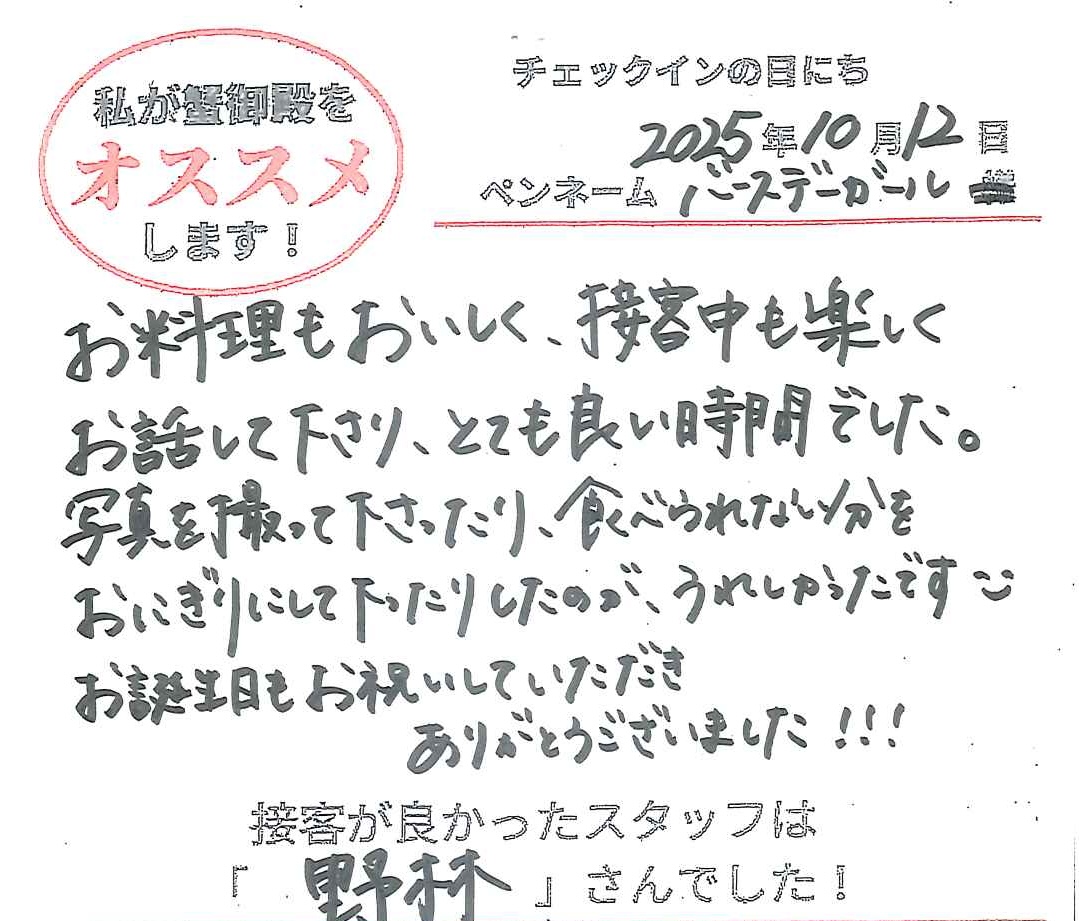 私が蟹御殿を
オススメ
します！
チェックインの日にち
2025年10月12日
ペンネーム バースデーガール 様
お料理もおいしく、接客中も楽しく
お話して下さり、とても良い時間でした。
写真を撮って下さったり、食べられない分を
おにぎりにして下ったりしたのが、うれしかったです
お誕生日もお祝いしていただき
ありがとうございました!!!
接客が良かったスタッフは
「野林」さんでした！